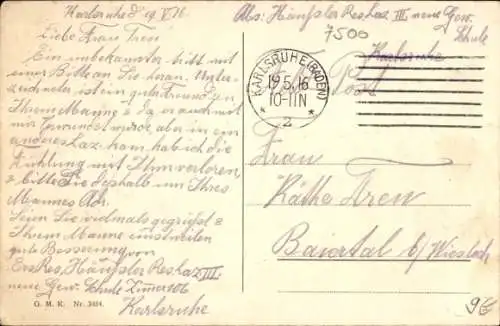 Karlsruhe d 19.V.16.
Liebe Frau Tren!
Ein unbekannter bitt mit
einer Bitte an Sie heran. Unter-
zeichneter ist ein guter Freund von
Ihrem Manne & da er auch mit
mir verwundet wurde, aber in ein
anderes Laz. kam, hab ich die
Fühlung mit Ihm verloren,
& bitte Sie deshalb um Ihres
Mannes Adr.
Seien Sie vielmals gegrüßt &
Ihrem Manne einstweilen
gute Besserung von
Ers. Res. Häußler Res Laz III
neue Gew. Schule Zimmer 106
Karlsruhe
G. M. K. Nr. 3484.
Abs: Häußler Res Laz III neue Gew.
Schule
7500
Karlsruhe
KARLSRUHE (BADEN)
19.5.16
10-11N
* 2 *
Post
Frau
Käthe Tren
Baiertal b/ Wiesloch
9E